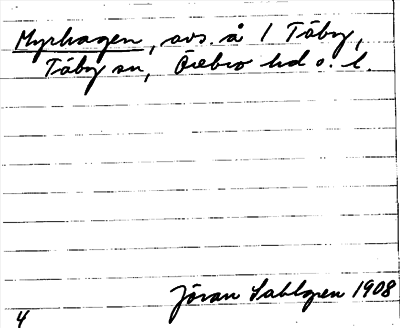 Myrhagen, avs. å 1 Täby,
Täby sn, Örebro hd o. l.
Jöran Sahlgren 1908
4